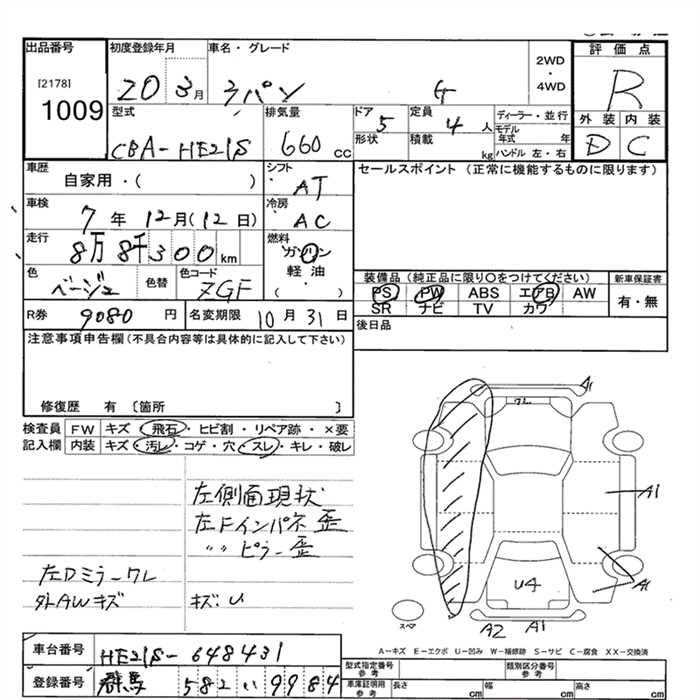 出品番号
[2178]
1009
初度登録年月
20 3月
車名・グレード
ラパン G
2WD
・
4WD
評価点
R
外装 内装
D C
型式
CBA-HE21S
排気量
660 cc
ドア
5
形状
定員
4 人
積載
kg
ディーラー・並行
モデル
年式 年
ハンドル 左・右
車歴
自家用・( )
シフト
AT
セールスポイント (正常に機能するものに限ります)
車検
7年 12月(12日)
冷房
AC
走行
8万8千300km
燃料
ガソリン
軽油
( )
色
ベージュ
色替
色コード
ZGF
装備品 (純正品に限り〇をつけてください)
新車保証書
PS PW ABS エアB AW
SR ナビ TV カワ
有・無
R券
9080 円
名変期限
10月31日
後日品
注意事項申告欄 (不具合内容等は具体的に記入して下さい)
修復歴 有 〔箇所 〕
検査員
記入欄
FW キズ・飛石・ヒビ割・リペア跡・×要
内装 キズ・汚レ・コゲ・穴・スレ・キレ・破レ
左側面現状
左Fインパネ 歪
〃 ピラー 歪
左Dミラーワレ
外AWキズ
キズ:U
A1
U4
A1
A2 A1
スペア
A-キズ E-エクボ U-凹み W-補修跡 S-サビ C-腐食 XX-交換済
車台番号
HE21S-648431
登録番号
群馬 582 い 9984
型式指定番号
参考
類別区分番号
参考
車庫証明用
参考
長さ cm
幅 cm
高さ cm